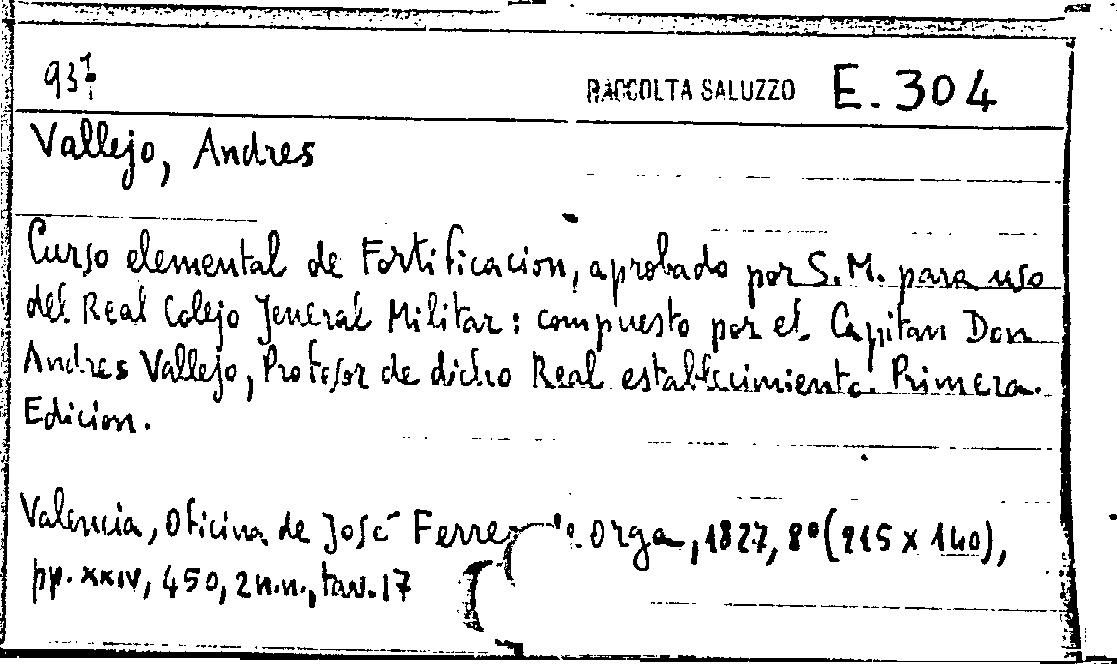 937 RACCOLTA SALUZZO E. 304
Vallejo, Andres
Curso elemental de Fortificacion, aprobado por S. M. para uso
del Real Colejo Jeneral Militar: compuesto por el Capitan Don
Andres Vallejo, Profesor de dicho Real establecimiento. Primera
Edicion.
Valencia, Oficina de José Ferre Orga, 1827, 8° (215 x 140),
pp. XXIV, 450, 2 n.n., tav. 17